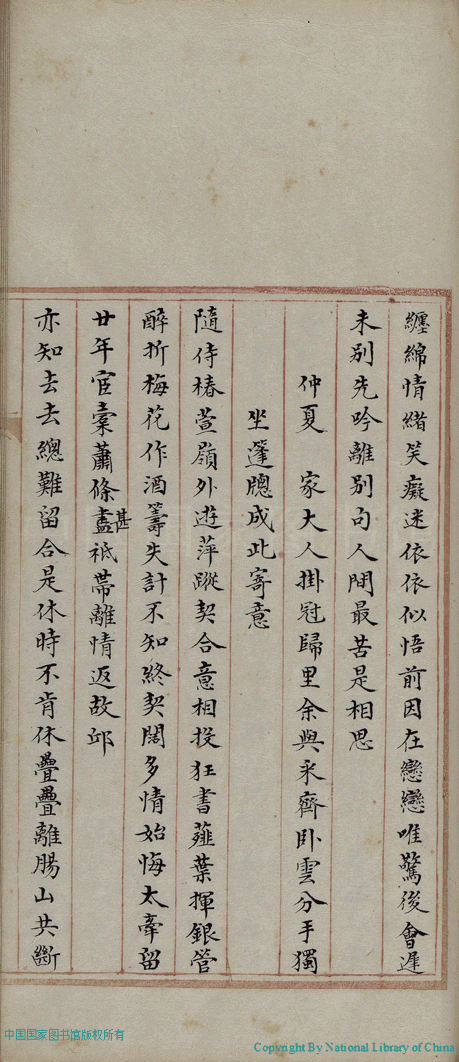 纏綿情緒笑癡迷依依似悟前因在戀戀唯驚後會遲
未別先吟離別句人間最苦是相思
仲夏　家大人掛冠歸里余與采齊卧雲分手獨
坐篷牕成此寄意
隨侍椿萱嶺外遊萍蹤契合意相投狂書薤葉揮銀管
醉折梅花作酒籌失計不知終契闊多情始悔太牽留
廿年宦橐蕭條盡甚祗帶離情返故邱
亦知去去總難留合是休時不肯休疊疊離腸山共斷
中国国家图书馆版权所有
Copyright By National Library of China